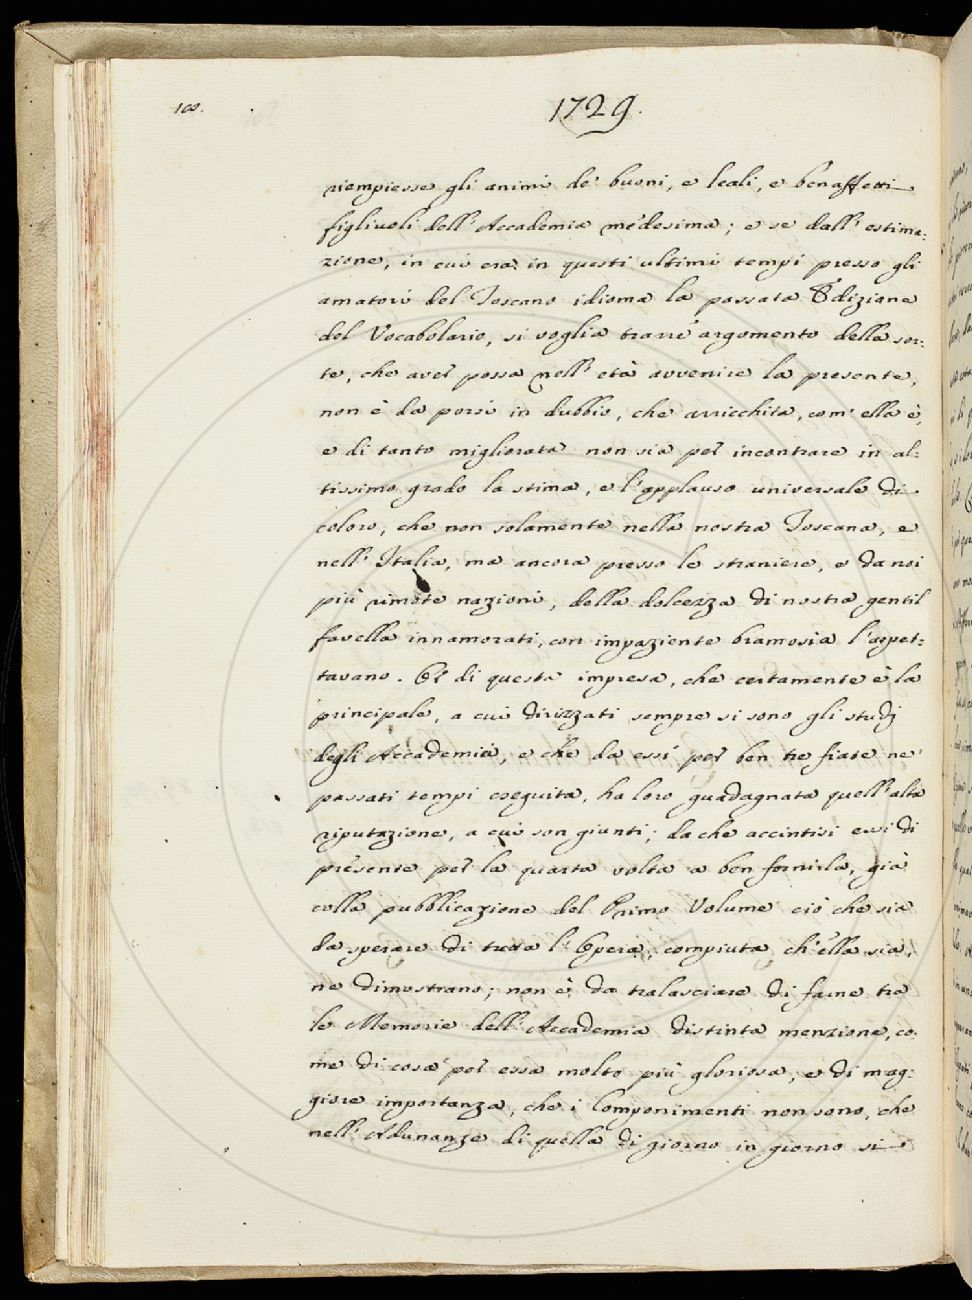 100.
1729.
riempiesse gli animi de' buoni, e leali, e benaffetti
figliuoli dell'Accademia medesima; e se dall'estima:
zione, in cui era in questi ultimi tempi presso gli
amatori del Toscano idioma la passata Edizione
del Vocabolario, si voglia trarre argomento della sor:
te, che aver possa nell'età avvenire la presente,
non è da porsi in dubbio, che arricchita, com'ella è,
e di tanto migliorata non sia per incontrare in al:
tissimo grado la stima, e l'applauso universale di
coloro, che non solamente nella nostra Toscana, e
nell'Italia, ma ancora presso le straniere, e da noi
più rimote nazioni, della dolcezza di nostra gentil
favella innamorati, con impaziente bramosia l'aspet:
tavano. Or di questa impresa, che certamente è la
principale, a cui dirizzati sempre si sono gli studj
degli Accademici, e che da essi per ben tre fiate ne'
passati tempi eseguita, ha loro guadagnata quell'alta
riputazione, a cui son giunti; da che accintisi essi di
presente per la quarta volta a ben fornirla, già
colla pubblicazione del Primo Volume ciò che sia
da sperare di tutta l'Opera, compiuta, ch'ella sia,
ne dimostrano; non è da tralasciare di farne tra
le Memorie dell'Accademia distinta menzione, co:
me di cosa per essa molto più gloriosa, e di mag:
giore importanza, che i Componimenti non sono, che
nell'Adunanze di quella di giorno in giorno si